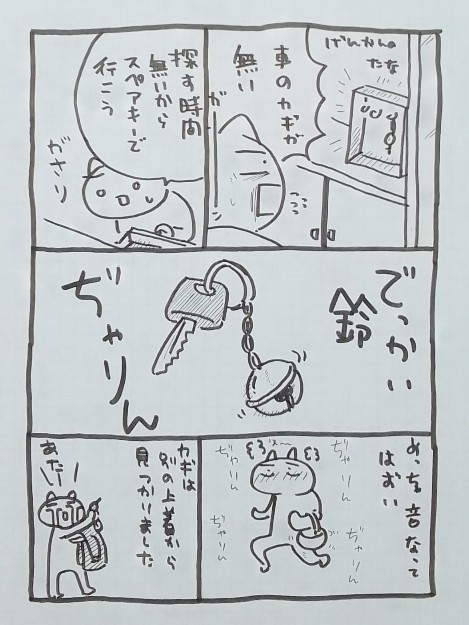 げんかんの
たな
車のカギが
無い
ガ
探す時間
無いから
スペアキーで
行こう
がさり
でっかい
鈴
ぢゃりん
めっちゃ音なって
はずい
ぢゃりん
ぢゃりん
ぢゃりん
ぢゃりん
カギは
別の上着から
見つかりました
あたー